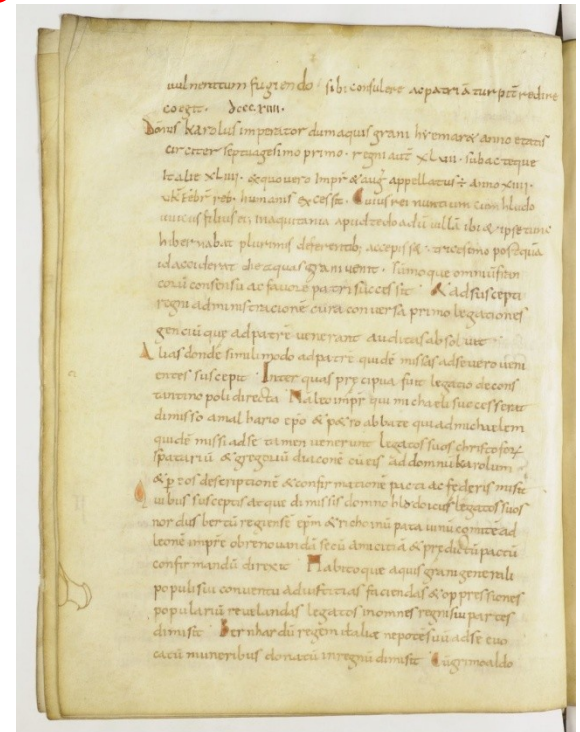 uulneratum fugiendo sibi consulere ac patriã turpit̃ redire
coegit · dccc xiiii ·
Domnus Karolus imperator dum aquis grani hiemaret anno etatis
circiter septuagesimo primo · regni aut̃ XL vii · subacteque
Italie XL iiii · ex quo uero impr̃ & aug̃ appellatus ÷ anno xiiii ·
v kl̃ febr̃ reb; humanis excessit · Cuius rei nuntium cum hludo
uuicus filius ei in aquitania apud tedoadũ uillã ibi & ipse tunc
hibernabat plurimis deferentib; accepisset · tricesimo postquã
id acciderat die aquis grani uenit · summoque omniũ fran
corũ consensu ac fauore patri successit · & ad suscepti
regni administracionẽ curã conuersa primo legationes
genciũ que ad patrẽ uenerant auditas absoluit
Alias donde simili modo ad patrẽ quidẽ missas ad se uero ueni
entes suscepit Inter quas precipua fuit legatio de cons
tantinopoli directa Nã leo impr̃ qui michaeli successerat
dimisso amalhario ep̃o & petro abbate qui ad michaelem
quidẽ missi ad se tamen uenerunt legatos suos christoforũ
spatariũ & gregoriũ diaconẽ cũ eis ad domnũ karolum
& p eos descriptionẽ & confirmacionẽ pacti ac federis misit
uibus susceptis atque dimissis domno hludoicus legatos suos
nordusbertũ regiensẽ ep̃m & richoinũ patauinũ comitẽ ad
leonẽ impr̃e ob renouandã secũ amicitiã & predictũ pactũ
confirmandũ direxit Habitoque aquis grani generali
populi sui conuentu ad iusticias faciendas & oppressiones
popularium reuelandas legatos in omnes regni sui partes
dimisit Bernhardũ regem italiae nepotẽ suũ ad se euo
catũ muneribus donatũ in regnũ dimisit Cũ grimoaldo